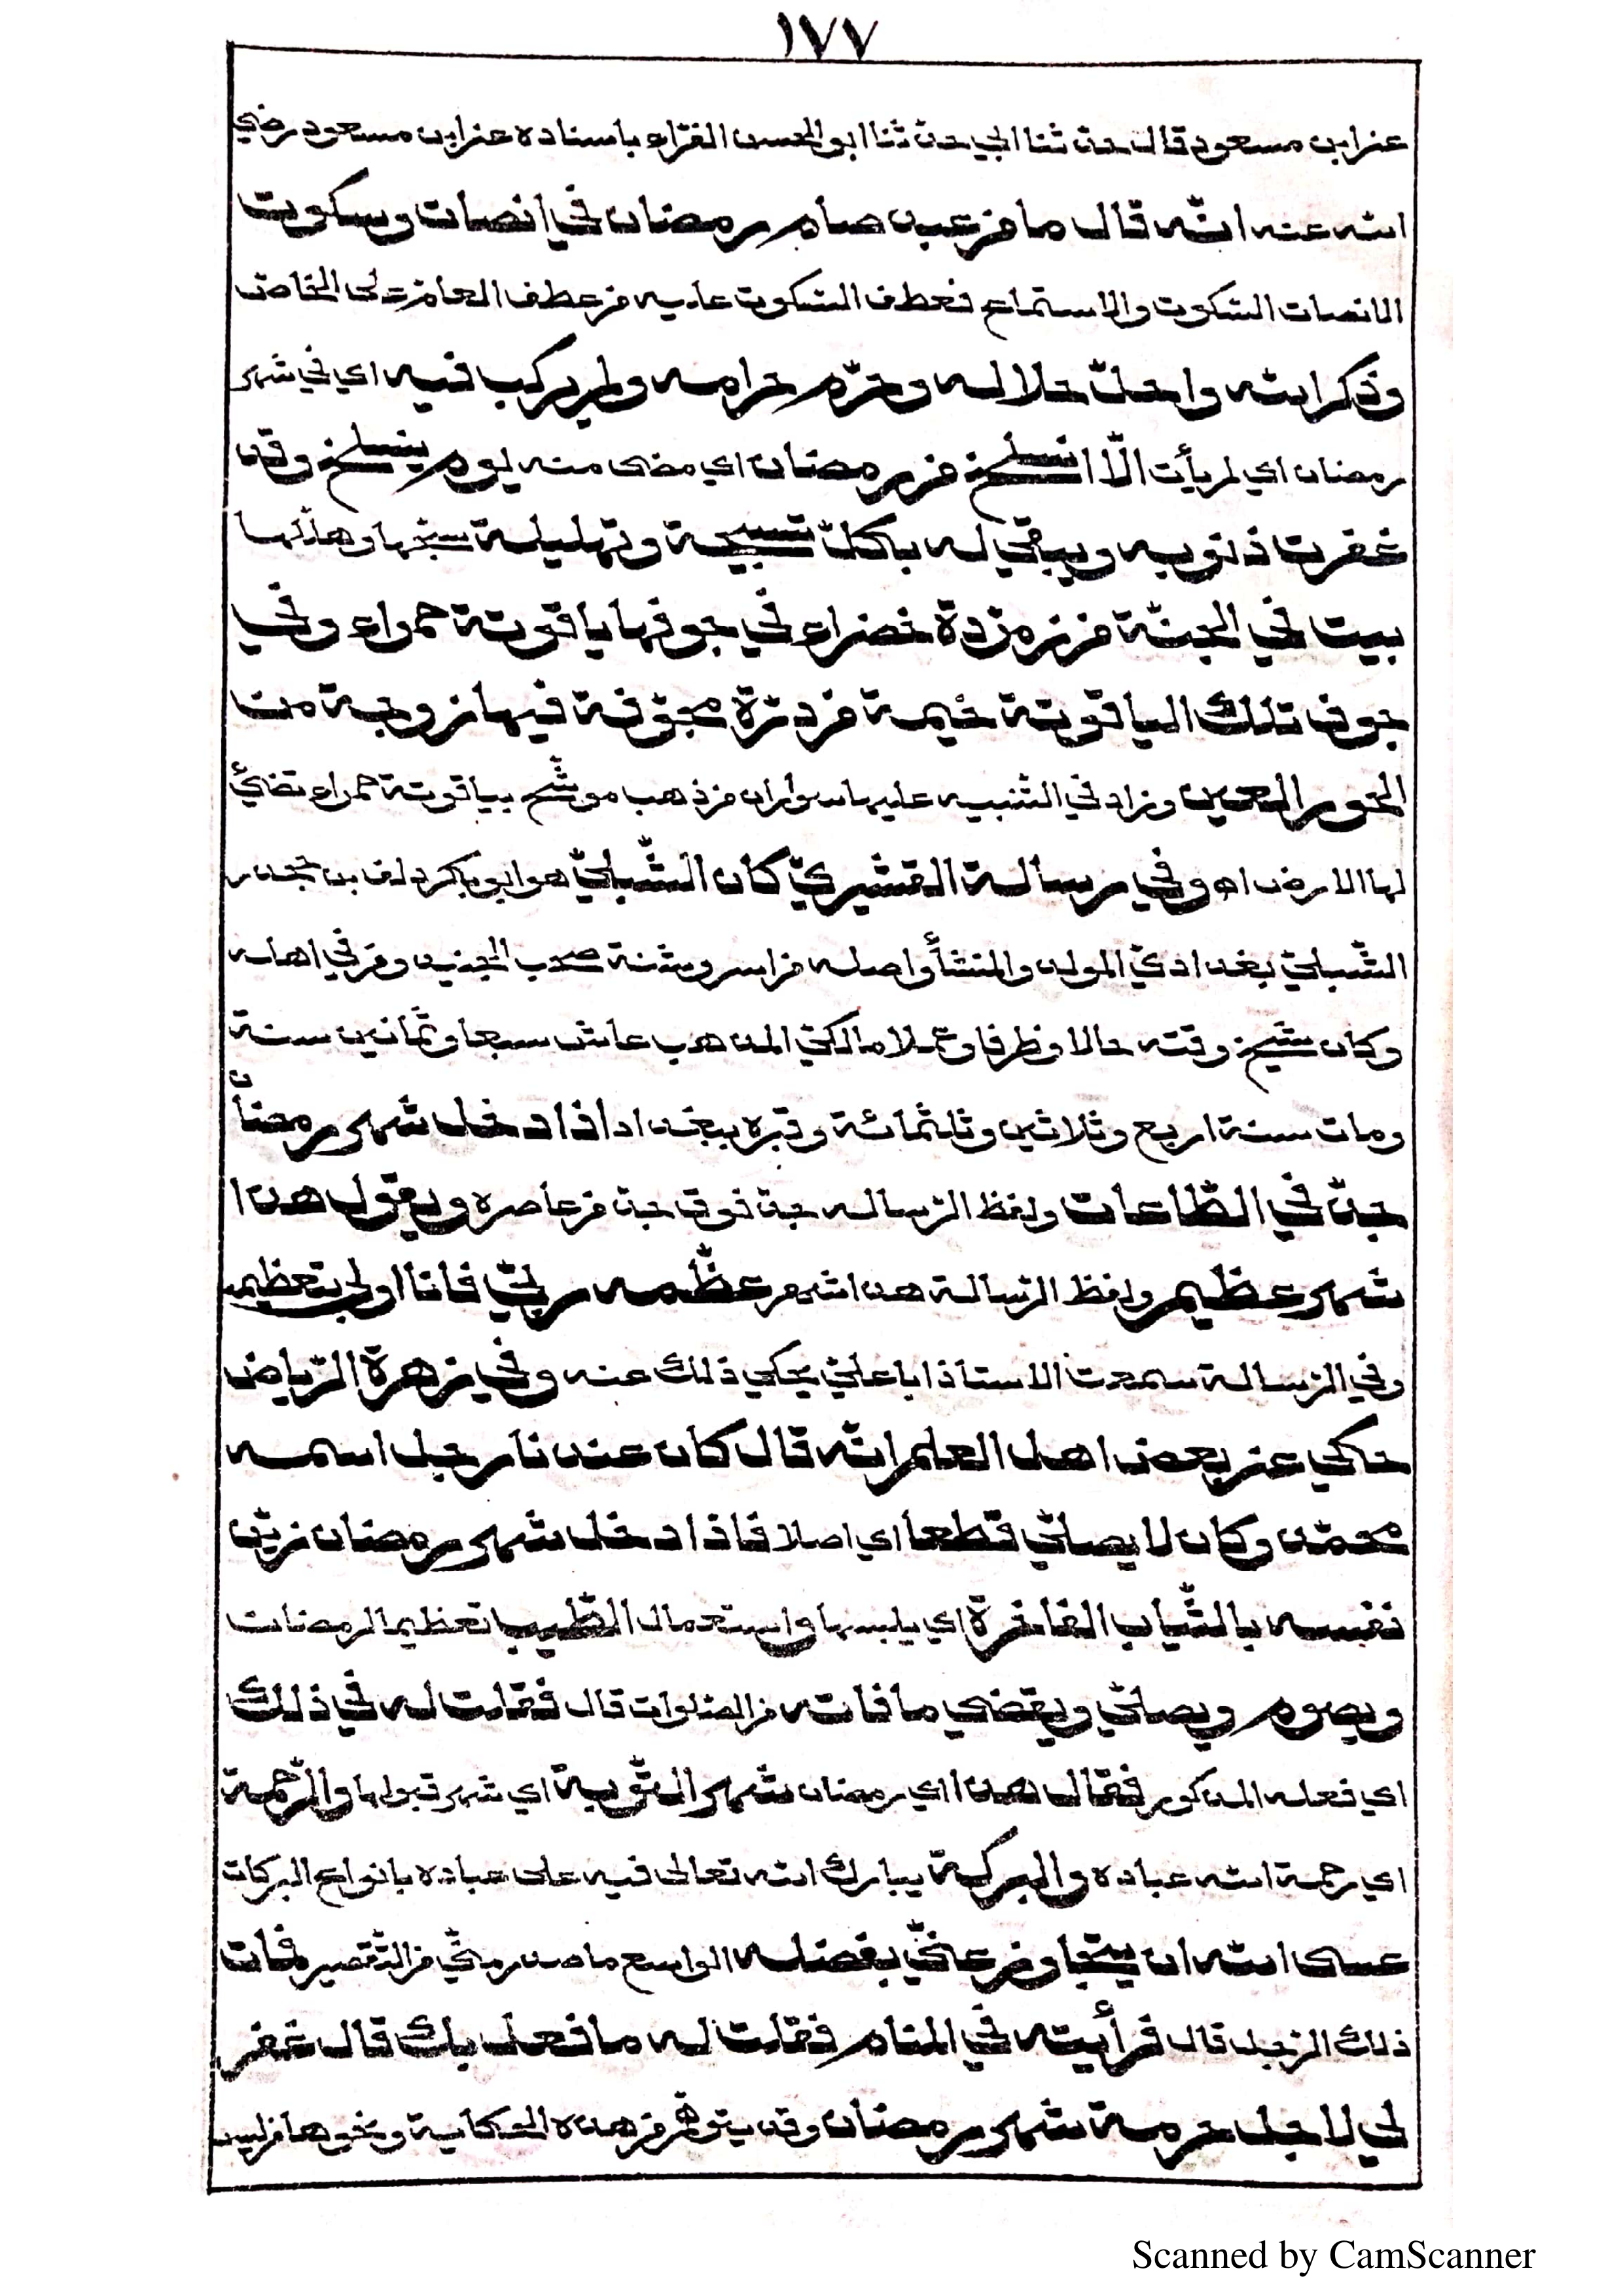 ١٧٧
عن ابن مسعود قال حدثنا ابي حدثنا ابو الحسن الفرّاء باسناده عن ابن مسعود رضي
الله عنه انّه قال ما من عبد صام رمضان في إنصات وسكوت
الانصات السّكوت والاستماع فعطف السّكوت عليه من عطف العام على الخاص
وذكر الله واحلّ حلاله وحرّم حرامه ولم يركب فيه اي في شهر
رمضان اي لم يأت الّا انسلخ من رمضان اي مضى منه ليوم ينسلخ وقد
غفرت ذنوبه ويبقى له بكلّ تسبيحة وتهليلة سبّحها وهلّلها
بيت في الجنّة من زمرّدة خضراء في جوفها ياقوتة حمراء وفي
جوف تلك الياقوتة خيمة من درّة مجوّفة فيها زوجة من
الحور العين وزاد في التّنبيه عليها سواران من ذهب موشّح بياقوتة حمراء تضيئ
لها الارض اه وفي رسالة القشيريّ كان الشّبليّ هو ابو بكر دلف بن جحدر
الشّبليّ بغداديّ المولد والمنشأ واصله من اسروشنة صحب الجنيد ومن في اهله
وكان شيخ وقته حالا وظرفا وعملا مالكيّ المذهب عاش سبعا وثمانين سنة
ومات سنة اربع وثلاثين وثلثمائة وقبره ببغداد اذا دخل شهر رمضان
جدّ في الطّاعات ولفظ الرّساله جدّ فوق جدّ من عاصره ويقول هذا
شهر عظيم ولفظ الرّسالة هذا شهر عظّمه ربّي فانا اولى بتعظيمه
وفي الرّسالة سمعت الاستاذ ابا عليّ يحكي ذلك عنه وفي زهرة الرّياض
حكي عن بعض اهل العلم انّه قال كان عندنا رجل اسمه
محمّد وكان لا يصلّي قطعا اي اصلا فاذا دخل شهر رمضان زيّن
نفسه بالثّياب الفاخرة اي يلبسها واستعمال الطّيب تعظيما لرمضان
ويصوم ويصلّي ويقضي ما فاته من الصّلوات قال فقلت له في ذلك
اي فعله المذكور فقال هذا اي رمضان شهر التّوبة اي شهر قبولها والرّحمة
اي رحمة الله عباده والبركة يبارك الله تعالى فيه على عباده بانواع البركات
عسى الله ان يتجاوز عنّي بفضله الواسع ما صدر منّي من التّقصير فمات
ذلك الرّجل قال فرأيته في المنام فقلت له ما فعل بك قال غفر
لي لاجل حرمة شهر رمضان وقد يتوهّم من هذه الحكاية ونحوها من ليس
Scanned by CamScanner